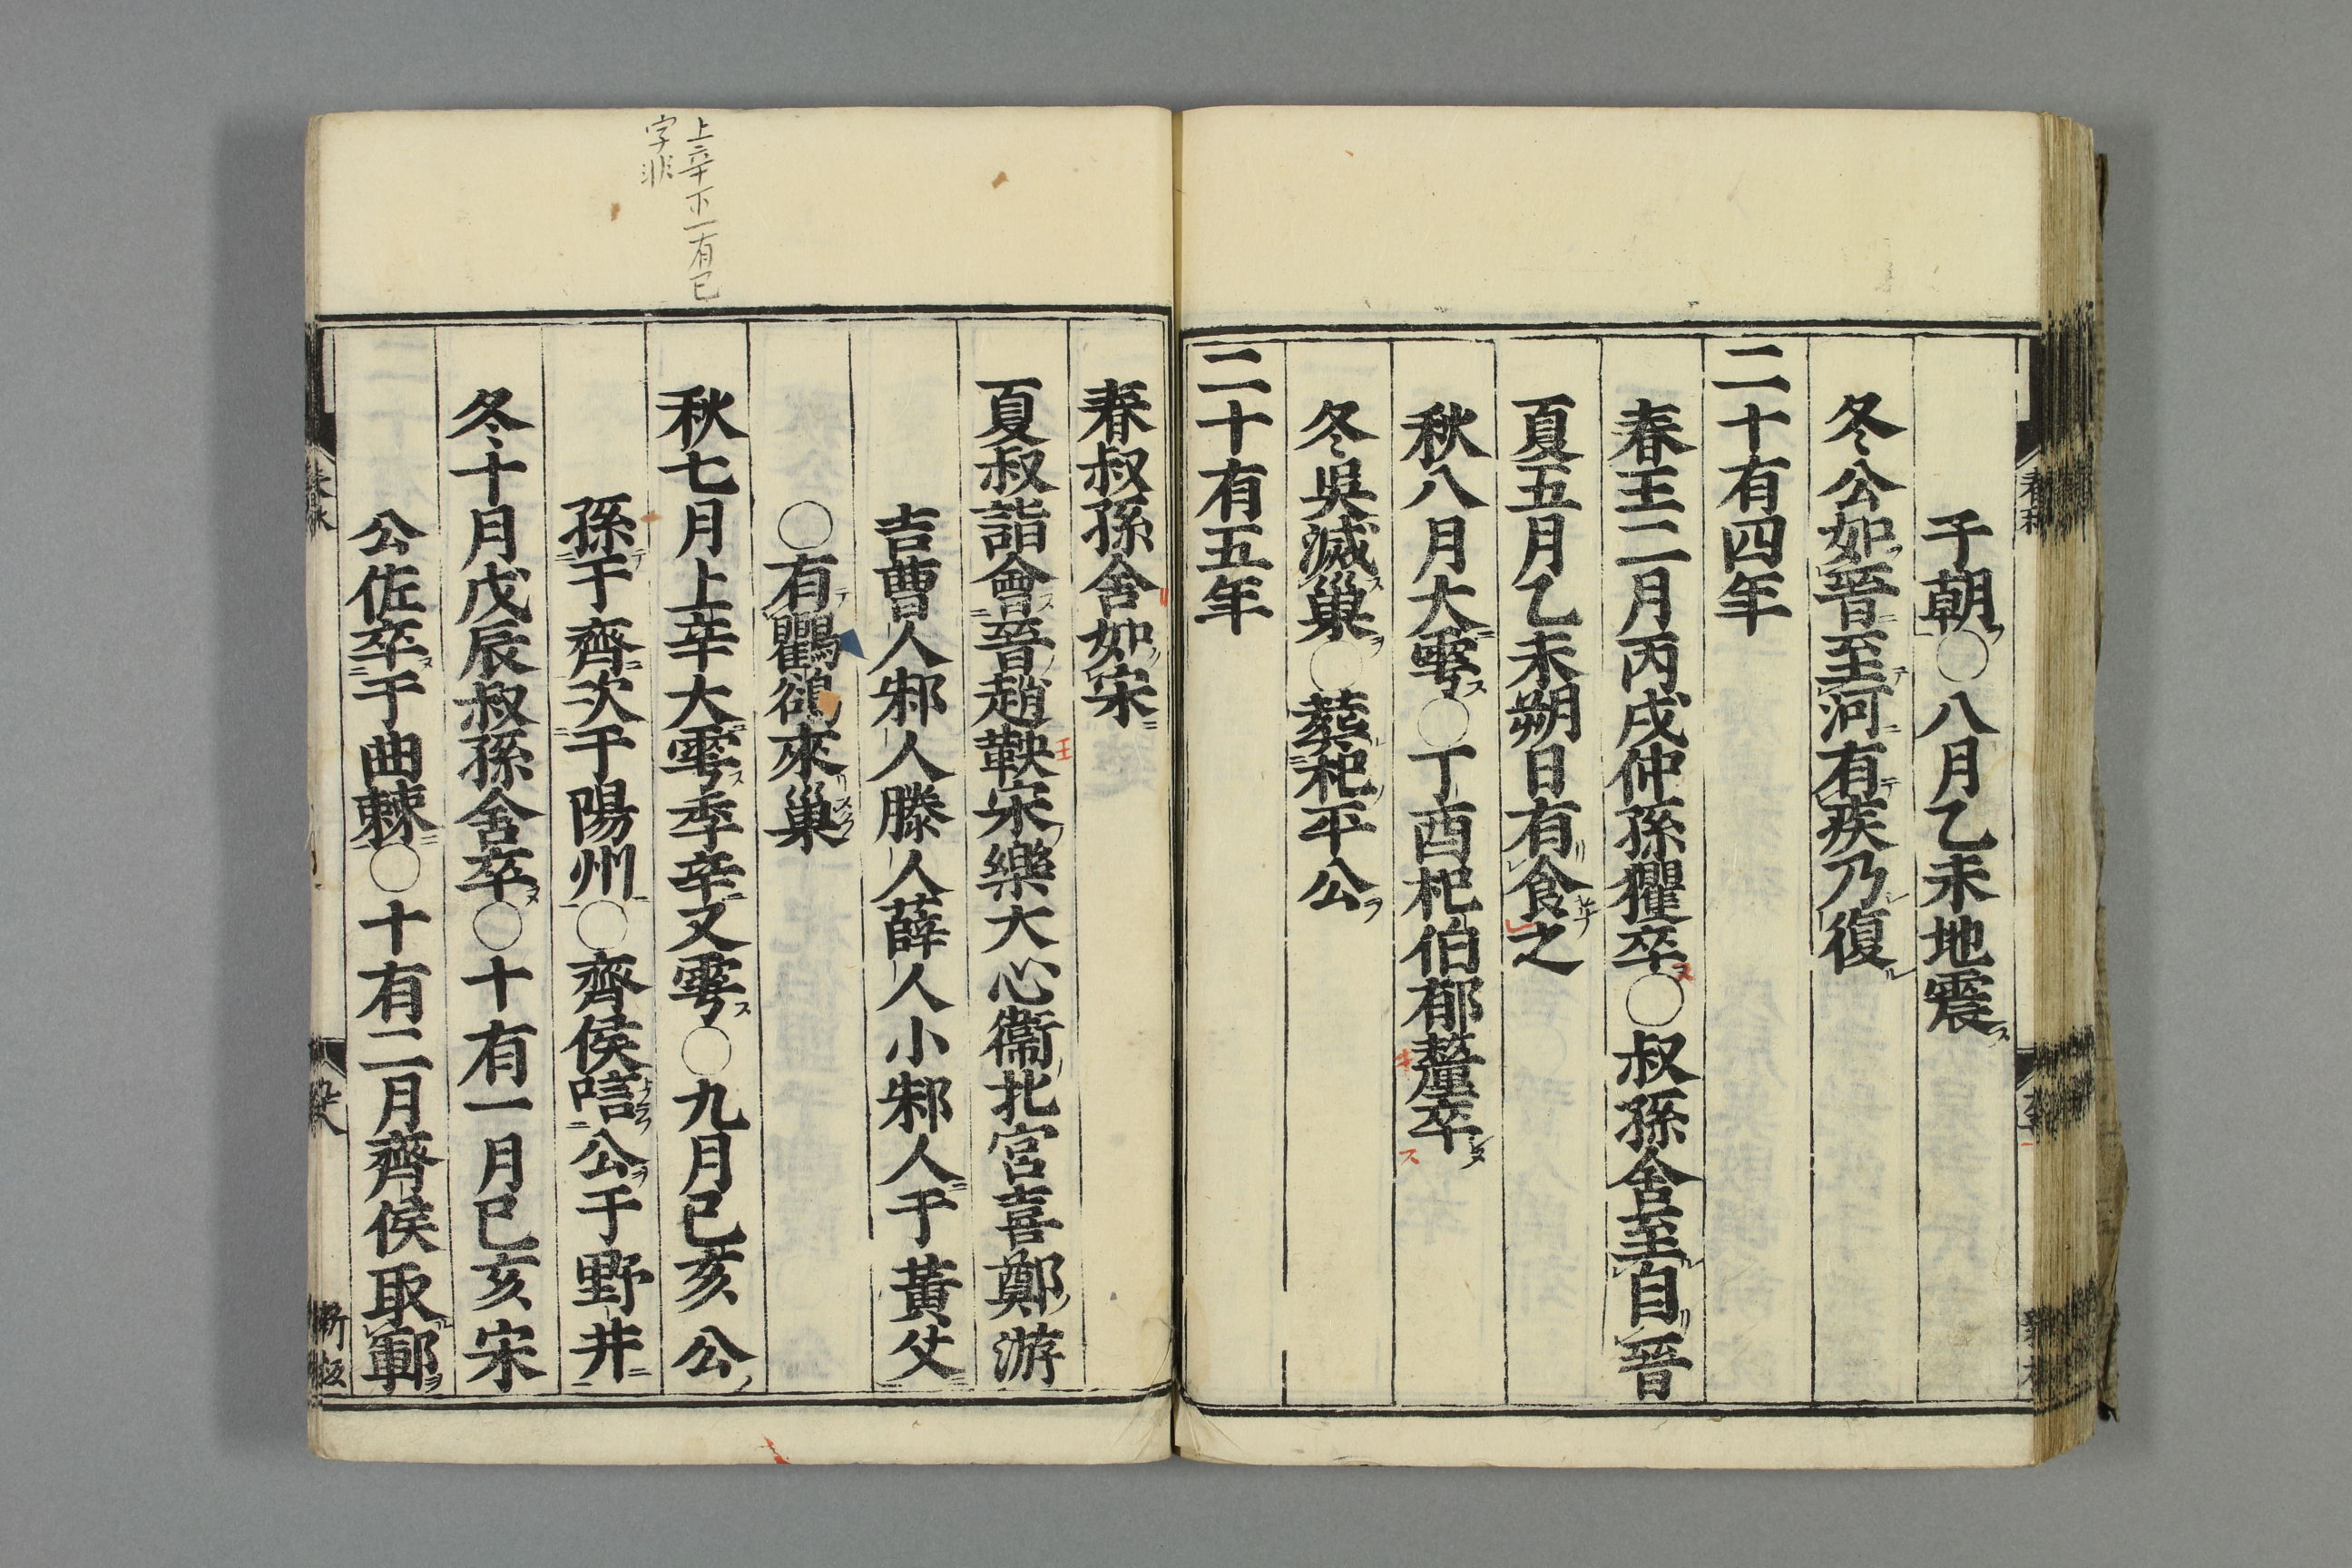 子朝○八月乙未地震
冬公如晉至河有疾乃復
二十有四年
春王二月丙戌仲孫貜卒○叔孫舍至自晉
夏五月乙未朔日有食之
秋八月大雩○丁酉杞伯郁釐卒
冬吳滅巢○葬杞平公
二十有五年
春叔孫舍如宋
夏叔詣會晉趙鞅宋樂大心衞北宮喜鄭游
吉曹人邾人滕人薛人小邾人于黃父
○有鸜鵒來巢
秋七月上辛大雩季辛又雩○九月已亥公
孫于齊次于陽州○齊侯唁公于野井
冬十月戊辰叔孫舍卒○十有一月已亥宋
公佐卒于曲棘○十有二月齊侯取鄆
上辛下一有已
字非
新板